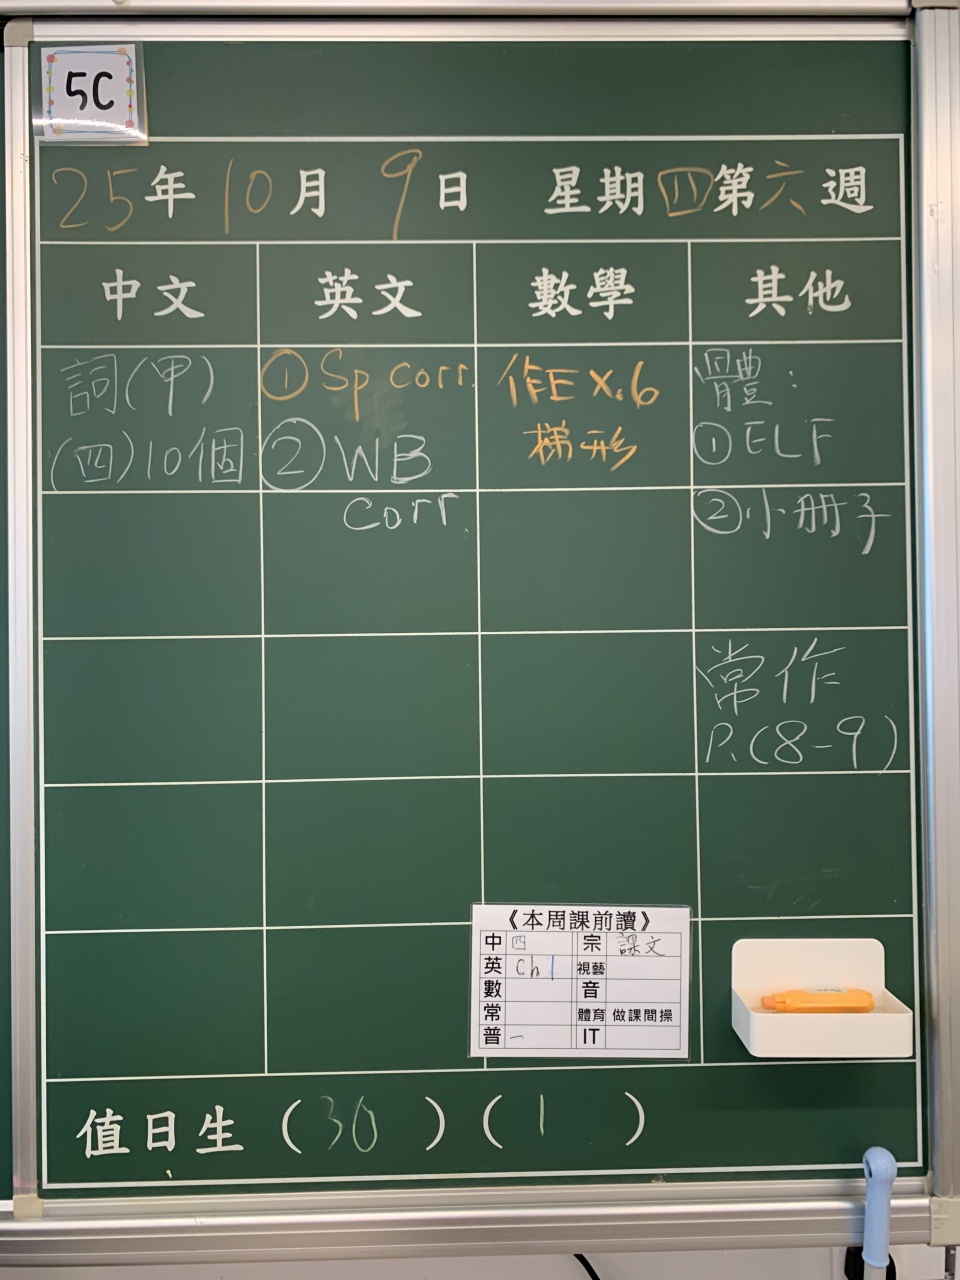 5C
25年10月9日 星期四第六週
中文 英文 數學 其他
詞(甲)
(四)10個
①Sp corr.
②WB
corr.
作Ex.6
梯形
體:
①ELF
②小册子
常作
P.(8-9)
《本周課前讀》
中 四 宗 課文
英 Ch1 視藝
數 音
常 體育 做課間操
普 一 IT
值日生(30)(1)